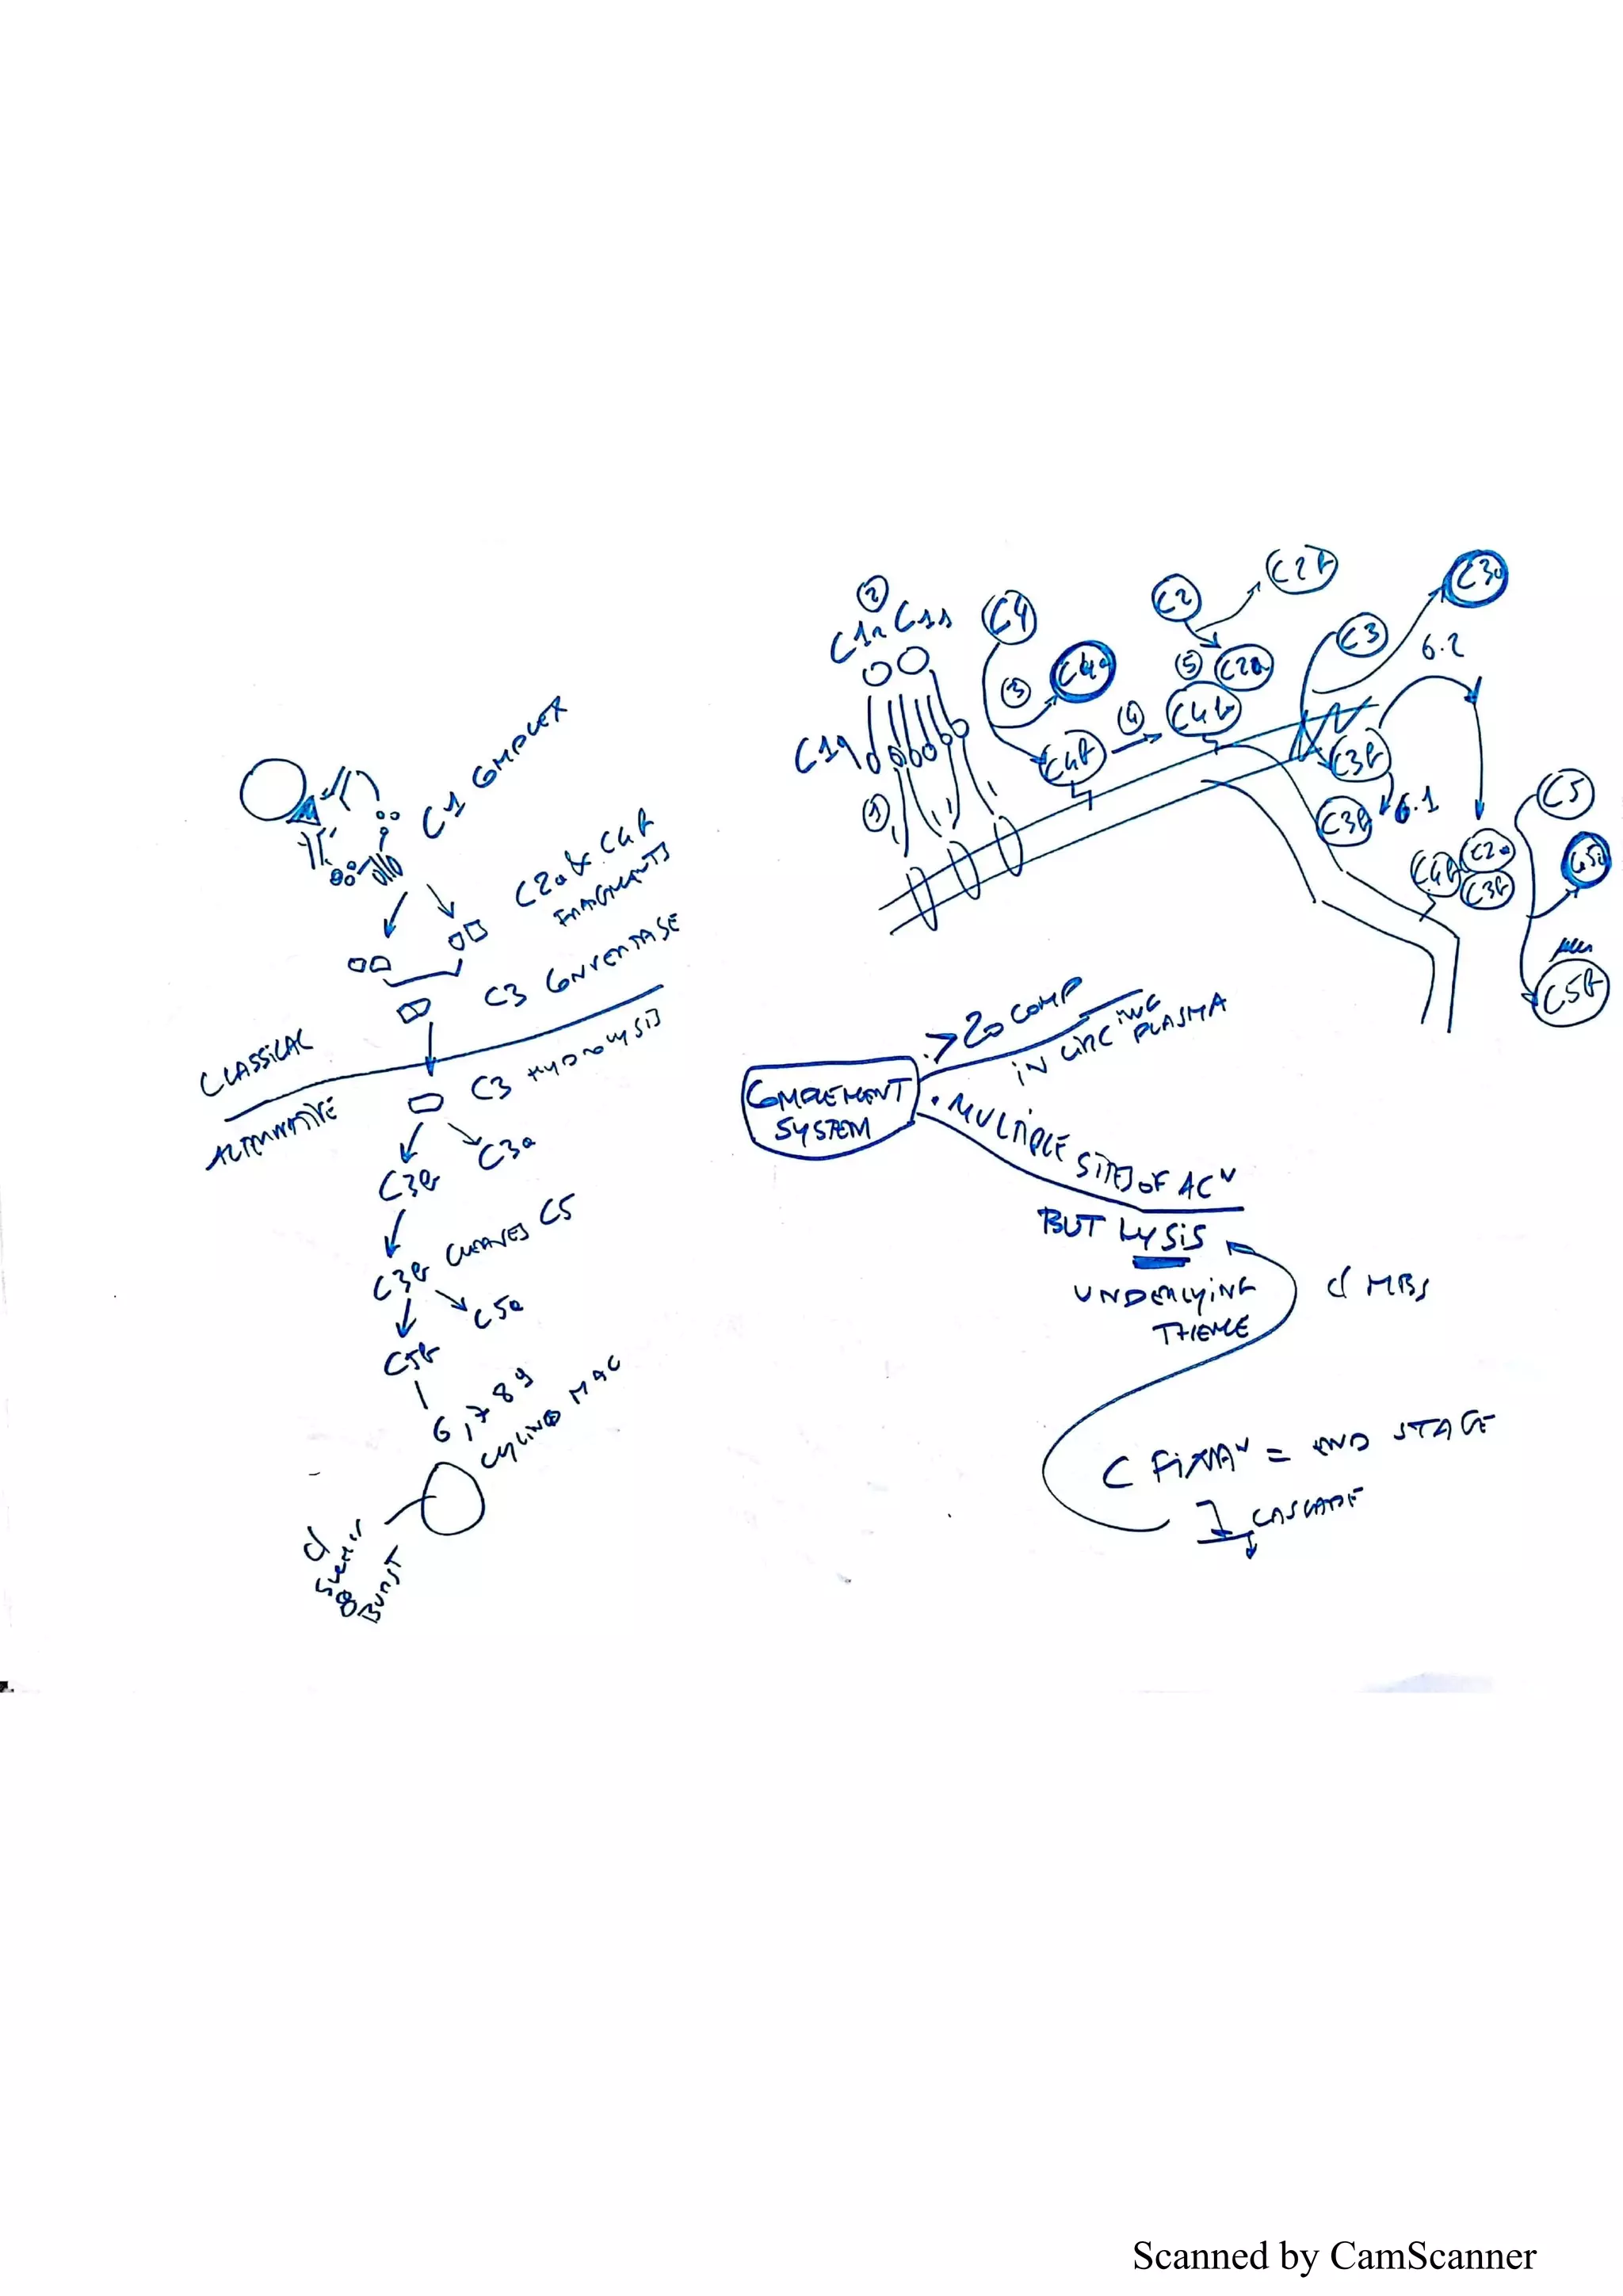 C1 COMPLEX
C2a & C4b
FRAGMENTS
C3 CONVERTASE
CLASSICAL
ALTERNATIVE
C3 HYDROLYSIS
C3b
C3a
C3b CLEAVES C5
C5a
C5b
6, 7 8 9
MAC
BURST
2
C1r C1s
C1q
1
C4
3
C4a
C4b
4
C2
C2b
5
C2a
C4b
C3
C3a
6.2
C3b
C3b
6.1
C4b
C2a
C3b
C5
C5a
C5b
COMPLEMENT
SYSTEM
• > 20 COMP
IN CIRC ING PLASMA
• MULTIPLE SITES OF ACN
BUT LYSIS
UNDERLYING
THEME
MBS
C FIXAN = END STAGE
CASCADE
Scanned by CamScanner